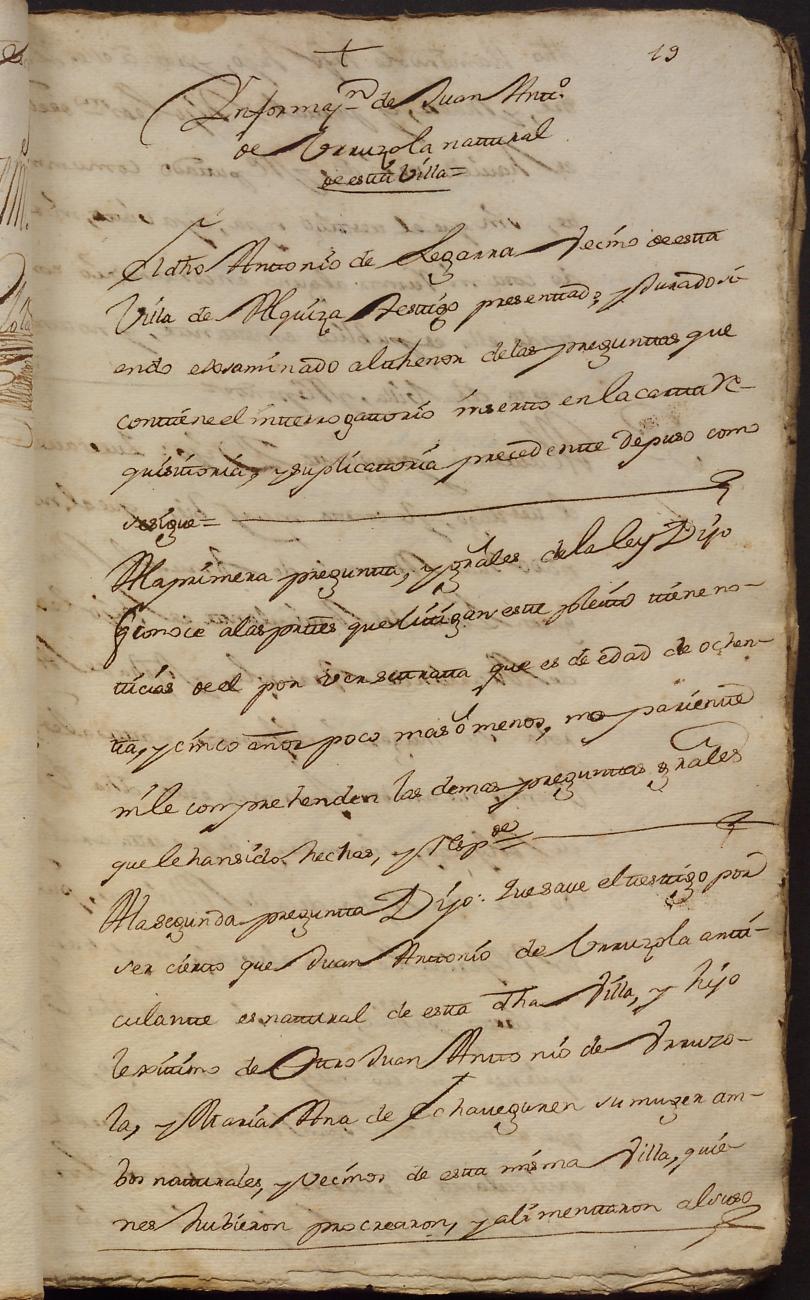 19
Informaᵒⁿ de Juan Antᵒ
de Urruzola natural
de esta Villa =
El dho Antonio de Legarra Vecino de esta
Villa de Alquiza testigo presentado, y Jurado si
endo essaminado al thenor de las preguntas que
contiene el interrogatorio inserto en la carta Re-
quisitoria, y suplicattoria precedente depuso como
se sigue =
A la primera pregunta, y grãles de la ley Dijo
q conoce a las partes que litigan este pleito tiene no-
ticias de el por verse trata que es de edad de ochen-
ta, y cinco años poco mas ô menos, no pariente
ni le comprehenden las demas preguntas grãles
que le han sido hechas, y Respᵈᵉ
A la segunda pregunta Dijo: Que save el testigo por
ser cierto que Juan Antonio de Urruzola arti-
culante es natural de esta dha Villa, y hijo
lexitimo de Otro Juan Antonio de Urruzo-
la, y Maria Ana de Echaveguren su muger am-
bos naturales, y vecinos de esta misma Villa, quie-
nes hubieron procrearon, y alimentaron al suso